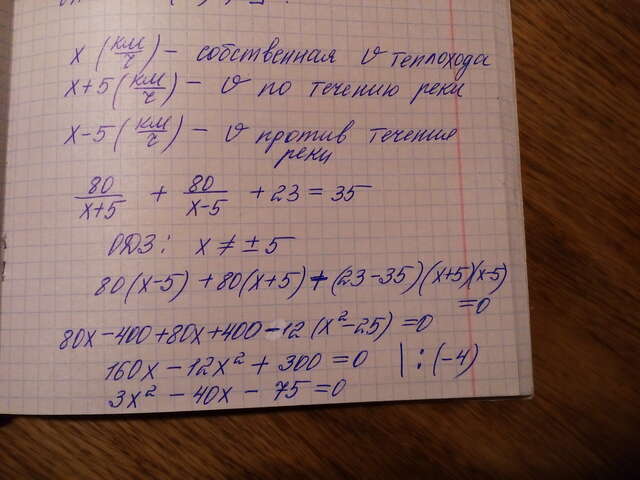 x (км/ч) – собственная v теплохода
x+5 (км/ч) – v по течению реки
x–5 (км/ч) – v против течения
реки
80/(x+5) + 80/(x–5) + 23 = 35
ОДЗ: x ≠ ± 5
80(x–5) + 80(x+5) + (23–35)(x+5)(x–5)
=0
80x–400+80x+400–12(x²–25)=0
160x–12x²+300=0 |:(–4)
3x²–40x–75=0